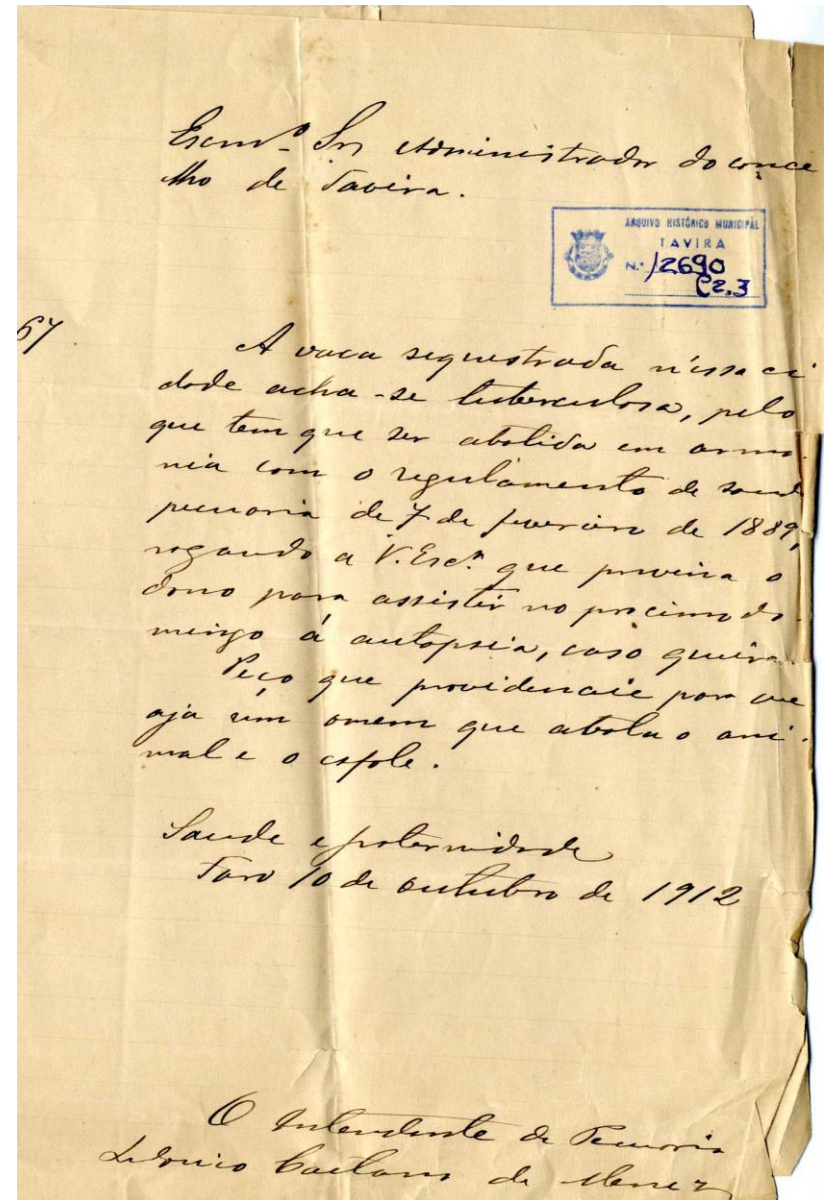 Exmº Snr Administrador do conce
lho de Tavira.
ARQUIVO HISTÓRICO MUNICIPAL
TAVIRA
N.º 12690
Cz.3
67
A vaca sequestrada n'essa ci
dade acha-se tuberculosa, pelo
que tem que ser abatida em armo
nia com o regulamento de saude
pecuaria de 7 de fevereiro de 1889,
rogando a V. Exc.ª que previna o
dono para assistir no procimo do
mingo á autopsia, caso queira.
Peço que providenceie para que
aja um omem que abata o ani-
mal e o esfole.
Saude e fraternidade
Faro 10 de outubro de 1912
O Intendente de Pecuaria
Caetano de Menez